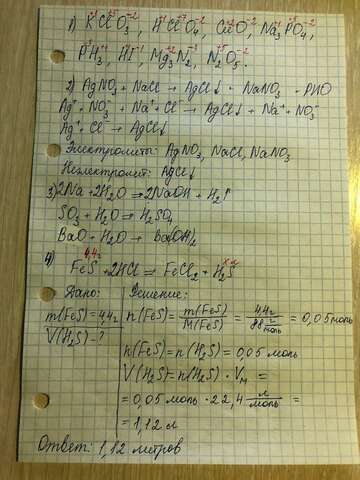 1) K⁺¹Cl⁺⁵O₃⁻², H⁺¹Cl⁺⁷O₄⁻², Cu⁺²O⁻², Na₃⁺¹P⁺⁵O₄⁻²,
P⁻³H₃⁺¹, H⁺¹I⁻¹, Mg₃⁺²N₂⁻³, N₂⁺⁵O₅⁻².
2) AgNO₃ + NaCl → AgCl↓ + NaNO₃ - РИО
Ag⁺ + NO₃⁻ + Na⁺ + Cl⁻ → AgCl↓ + Na⁺ + NO₃⁻
Ag⁺ + Cl⁻ → AgCl↓
Электролиты: AgNO₃, NaCl, NaNO₃
Неэлектролит: AgCl↓
3) 2Na + 2H₂O → 2NaOH + H₂↑
SO₃ + H₂O → H₂SO₄
BaO + H₂O → Ba(OH)₂
4) 4,4г х л
FeS + 2HCl = FeCl₂ + H₂S
Дано:
m(FeS) = 4,4г
V(H₂S) - ?
Решение:
n(FeS) = m(FeS)/M(FeS) = 4,4г/88 г/моль = 0,05 моль
n(FeS) = n(H₂S) = 0,05 моль
V(H₂S) = n(H₂S) · Vм =
= 0,05 моль · 22,4 л/моль =
= 1,12 л
Ответ: 1,12 литров